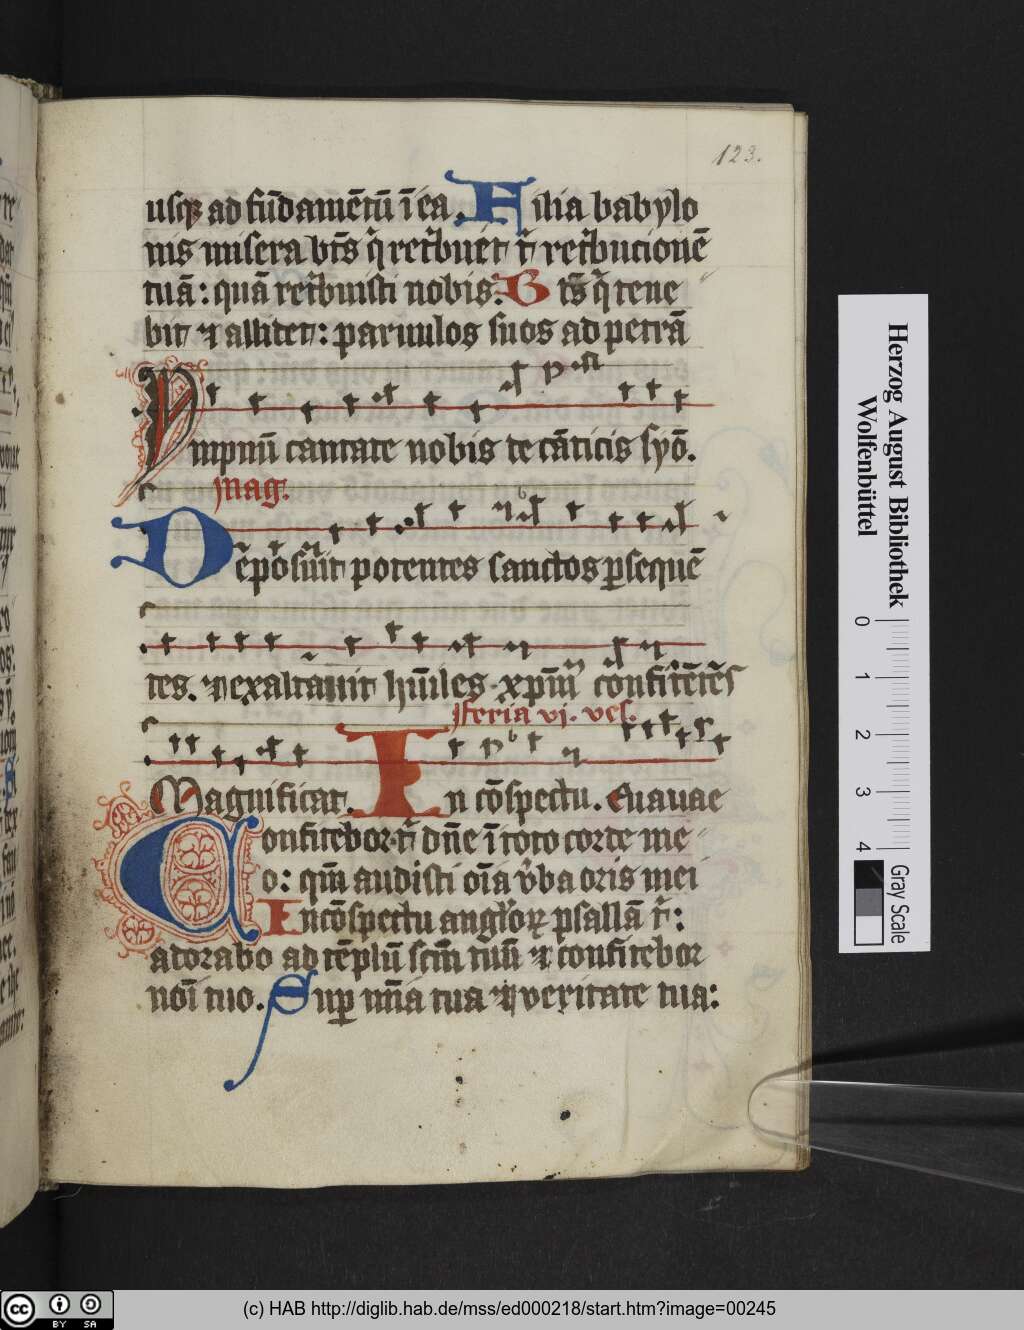 123.
usqꝫ ad fūdamētū ī ea. Filia babylo
nis misera bt̄s q̄ ret'buet t' ret'bucionē
tuā: quā ret'buisti nobis. Bt̄s q' tene
bit ⁊ allidet: paruulos suos ad petrā
Ympnū cantate nobis te cāticis syō.
Mag.
Dēposuit potentes sanctos ꝑsequē
tes. ⁊ exaltauit hūiles xpm̄ confitētes
feria vi. ves.
Magnificat. In cōspectu. Euauae
Confitebor t' dn̄e ī toto corde me
o: qm̄ audisti oīa v'ba oris mei
In cōspectu anglo'ꝝ psallā t':
adorabo ad tēplū scm̄ tuū ⁊ confitebor
noī tuo. Suꝑ mīa tua ⁊ veritate tua:
Herzog August Bibliothek
Wolfenbüttel
0 1 2 3 4
Gray Scale
cc BY SA
(c) HAB http://diglib.hab.de/mss/ed000218/start.htm?image=00245